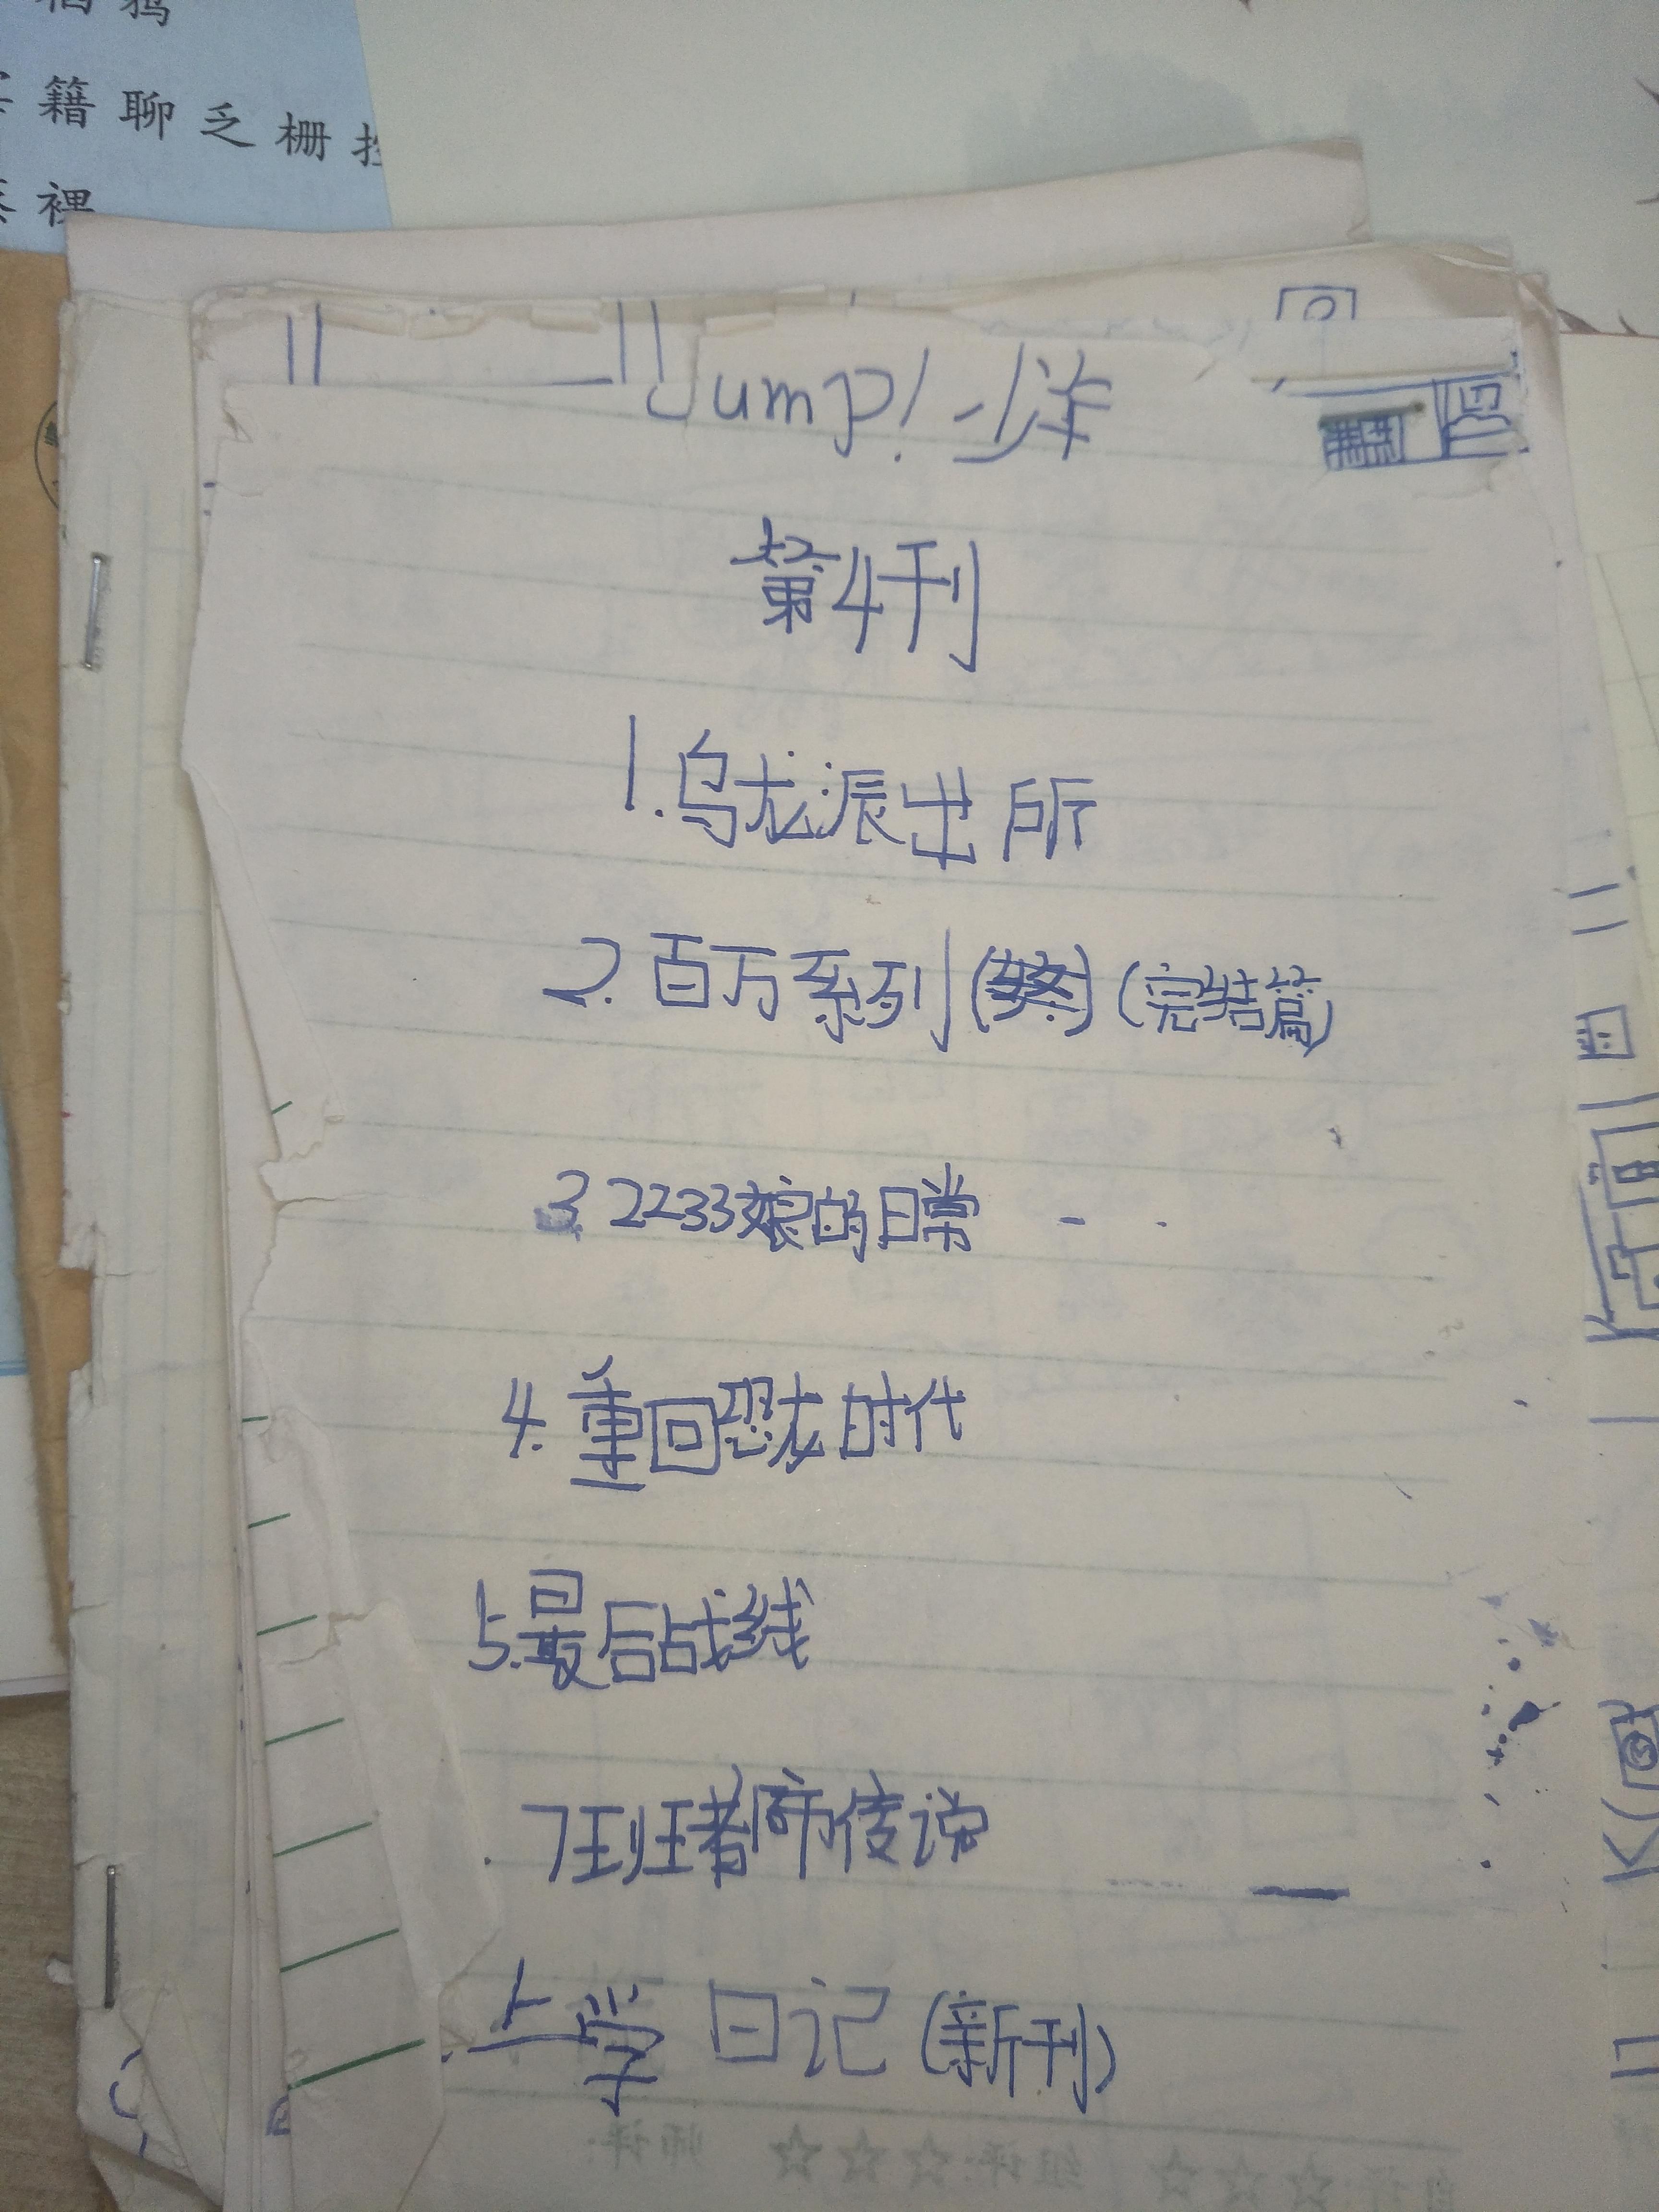 鸦
籍聊乏栅
裡
Jump!一少年
第4刊
1.乌龙派出所
2.百万系列(完结篇)
3 2233娘的日常
4.重回恐龙时代
5.最后战线
7班都市传说
上学日记(新刊)
自评:☆☆☆ 组评:☆☆☆ 师评: